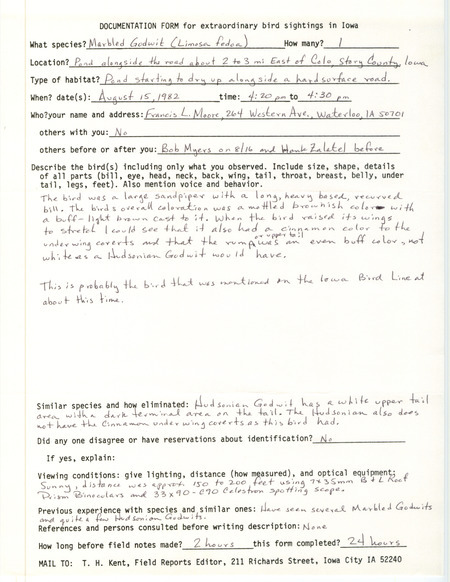 DOCUMENTATION FORM for extraordinary bird sightings in Iowa
What species? Marbled Godwit (Limosa fedoa) How many? 1
Location? Pond alongside the road about 2 to 3 mi East of Colo, Story County, Iowa
Type of habitat? Pond starting to dry up alongside a hardsurface road.
When? date(s): August 15, 1982 time: 4:20 pm to 4:30 pm
Who?your name and address: Francis L. Moore, 264 Western Ave., Waterloo, IA 50701
others with you: No
others before or after you: Bob Myers on 8/16 and Hank Zaletel before
Describe the bird(s) including only what you observed. Include size, shape, details
of all parts (bill, eye, head, neck, back, wing, tail, throat, breast, belly, under
tail, legs, feet). Also mention voice and behavior.
The bird was a large sandpiper with a long, heavy based, recurved
bill. The bird's overall coloration was a mottled brownish color with
a buff-light brown cast to it. When the bird raised its wings
to stretch I could see that it also had a cinnamon color to the
or upper tail
underwing coverts and that the rump was an even buff color, not
white as a Hudsonian Godwit would have.
This is probably the bird that was mentioned on the Iowa Bird Line at
about this time.
Similar species and how eliminated: Hudsonian Godwit has a white upper tail
area with a dark terminal area on the tail. The Hudsonian also does
not have the Cinnamon underwing coverts as this bird had.
Did any one disagree or have reservations about identification? No
If yes, explain:
Viewing conditions: give lighting, distance (how measured), and optical equipment:
Sunny, distance was approx. 150 to 200 feet using 7x35mm B+L Roof
Prism Binoculars and 33x90-C90 Celestron spotting scope.
Previous experience with species and similar ones: Have seen several Marbled Godwits
and quite a few Hudsonian Godwits.
References and persons consulted before writing description: None
How long before field notes made? 2 hours this form completed? 24 hours
MAIL TO: T. H. Kent, Field Reports Editor, 211 Richards Street, Iowa City IA 52240